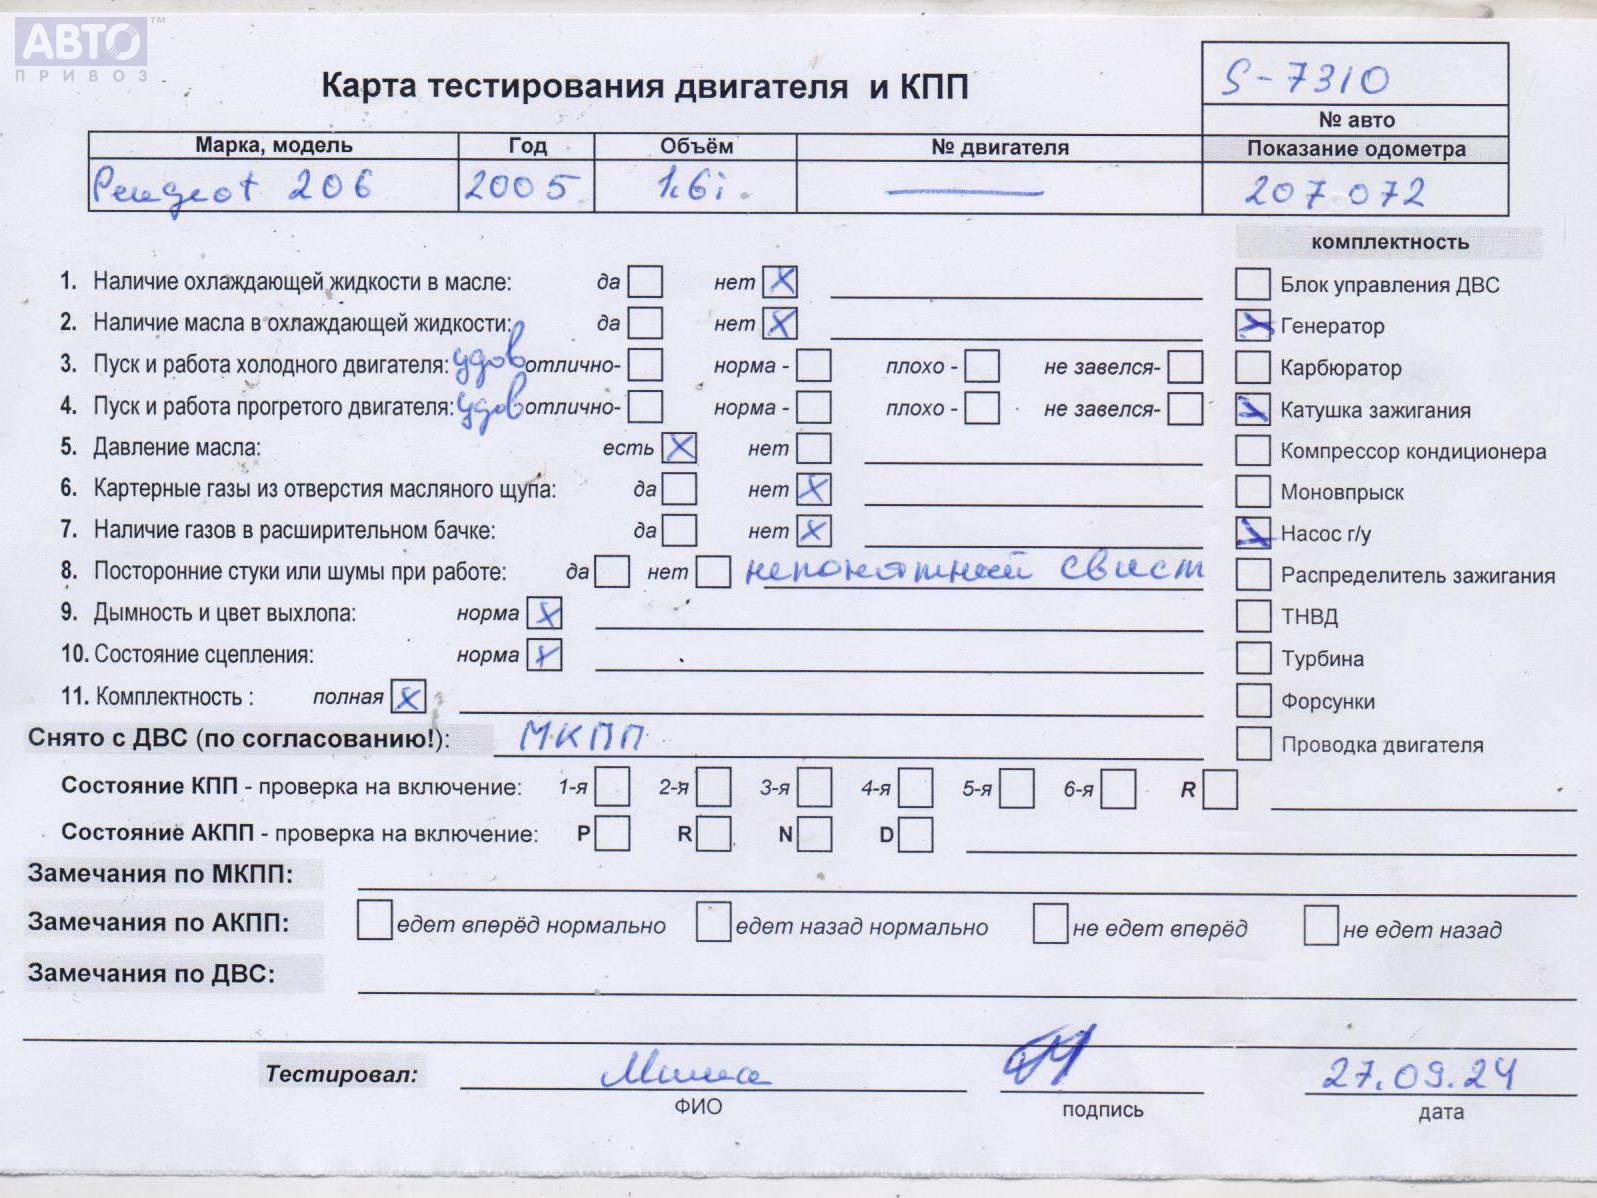 АВТО™
ПРИВОЗ
Карта тестирования двигателя и КПП
S-7310
№ авто
Марка, модель Год Объём № двигателя Показание одометра
Peugeot 206 2005 1.6i. — 207 072
комплектность
1. Наличие охлаждающей жидкости в масле: да нет X
Блок управления ДВС
2. Наличие масла в охлаждающей жидкости: да нет X
X Генератор
3. Пуск и работа холодного двигателя: удов отлично- норма - плохо - не завелся-
Карбюратор
4. Пуск и работа прогретого двигателя: удов отлично- норма - плохо - не завелся-
X Катушка зажигания
5. Давление масла: есть X нет
Компрессор кондиционера
6. Картерные газы из отверстия масляного щупа: да нет X
Моновпрыск
7. Наличие газов в расширительном бачке: да нет X
X Насос г/у
8. Посторонние стуки или шумы при работе: да нет непонятный свист
Распределитель зажигания
9. Дымность и цвет выхлопа: норма X
ТНВД
10. Состояние сцепления: норма X
Турбина
11. Комплектность : полная X
Форсунки
Снято с ДВС (по согласованию!): МКПП
Проводка двигателя
Состояние КПП - проверка на включение: 1-я 2-я 3-я 4-я 5-я 6-я R
Состояние АКПП - проверка на включение: P R N D
Замечания по МКПП:
Замечания по АКПП: едет вперёд нормально едет назад нормально не едет вперёд не едет назад
Замечания по ДВС:
Тестировал: Миша 27.09.24
ФИО подпись дата